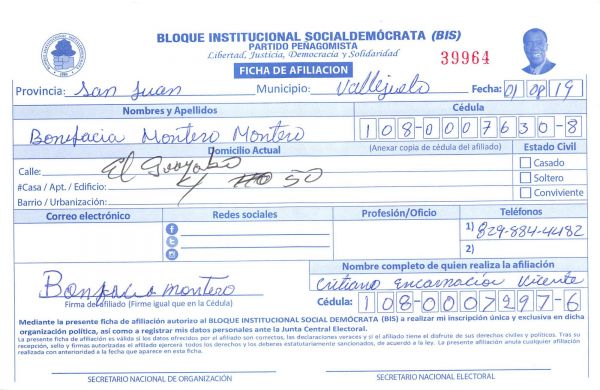 BLOQUE INSTITUCIONAL SOCIALDEMÓCRATA (BIS)
PARTIDO PEÑAGOMISTA
Libertad, Justicia, Democracia y Solidaridad
39964
FICHA DE AFILIACION
Provincia: San Juan Municipio: Vallejuelo Fecha: 01/08/19
Nombres y Apellidos Cédula
Bonefacia Montero Montero 108-0007630-8
Domicilio Actual (Anexar copia de cédula del afiliado) Estado Civil
Calle: El Guayabo Casado
#Casa / Apt. / Edificio: 50 Soltero
Barrio / Urbanización: Conviviente
Correo electrónico Redes sociales Profesión/Oficio Teléfonos
1) 829-884-4482
2)
Nombre completo de quien realiza la afiliación
Bonefacia montero Critiano Encarnacion Vicente
Firma del afiliado (Firme igual que en la Cédula) Cédula: 108-0007297-6
Mediante la presente ficha de afiliación autorizo al BLOQUE INSTITUCIONAL SOCIAL DEMÓCRATA (BIS) a realizar mi inscripción única y exclusiva en dicha
organización política, así como a registrar mis datos personales ante la Junta Central Electoral.
La presente ficha de afiliación es válida si los datos ofrecidos por el afiliado son correctos, las declaraciones veraces y si el afiliado tiene el disfrute de sus derechos civiles y políticos. Tras su
recepción, sello y firmas autorizadas el afiliado ejercerá todos los derechos y los deberes estatutariamente sancionados, de acuerdo a la ley. La presente afiliación anula cualquier afiliación
realizada con anterioridad a la fecha que aparece en esta ficha.
SECRETARIO NACIONAL DE ORGANIZACIÓN SECRETARIO NACIONAL ELECTORAL